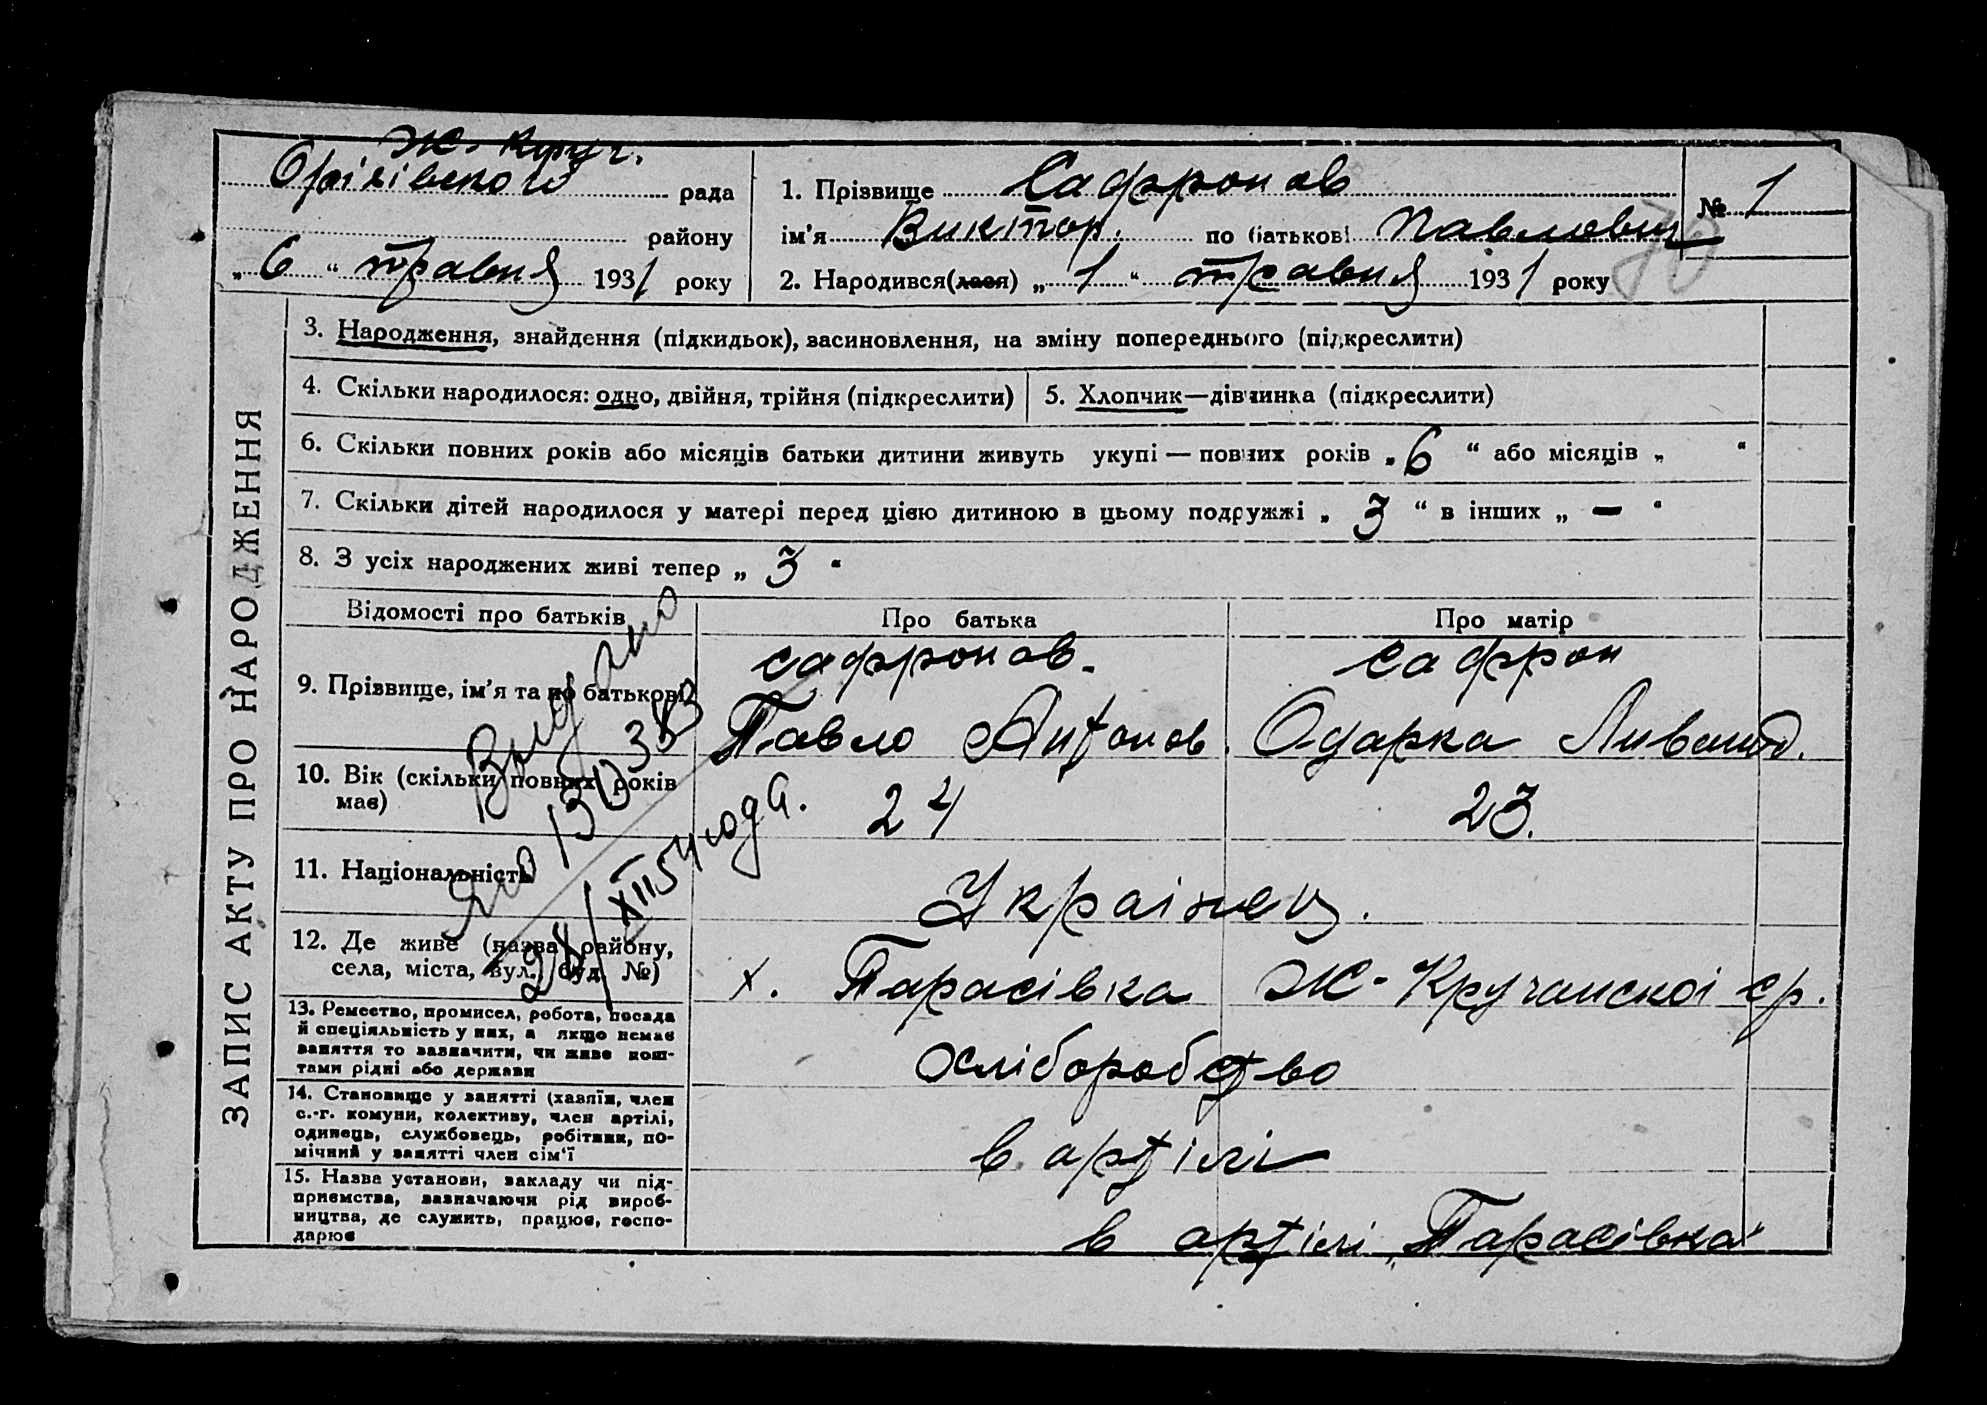 Ж. Круч.
Орілівського рада
району
„ 6 “ травня 1931 року
1. Прізвище Сафронов
ім’я Виктор. по батькові Павлович
2. Народився(лася) „ 1 “ травня 1931 року
№ 1
ЗАПИС АКТУ ПРО НАРОДЖЕННЯ
3. Народження, знайдення (підкидьок), засиновлення, на зміну попереднього (підкреслити)
4. Скільки народилося: одно, двійня, трійня (підкреслити)
5. Хлопчик—дівчинка (підкреслити)
6. Скільки повних років або місяців батьки дитини живуть укупі — повних років „ 6 “ або місяців „ “
7. Скільки дітей народилося у матері перед цією дитиною в цьому подружжі „ 3 “ в інших „ — “
8. З усіх народжених живі тепер „ 3 “
Відомості про батьків
Про батька
Про матір
9. Прізвище, ім’я та по батькові
Сафронов.
Павло Антонов.
Сафрон
Одарка
10. Вік (скільки повних років
має)
24
23.
11. Національність
Українец.
12. Де живе (назва району,
села, міста, вул., буд. №)
х. Тарасівка Ж-Кручанскоі ср.
13. Ремество, промисел, робота, посада
й спеціяльність у них, а якщо немає
заняття то зазначити, чи живе кош-
тами рідні або держави
Хліборобство
14. Становище у занятті (хазяїн, член
с.-г. комуни, колективу, член артілі,
одинець, службовець, робітник, по-
мічний у занятті член сім’ї
в артілі
15. Назва установи, закладу чи під-
приємства, зазначаючи рід вироб-
ництва, де служить, працює, госпо-
дарює
в артілі „Тарасівка“
Выдано
28/XII 54 года.